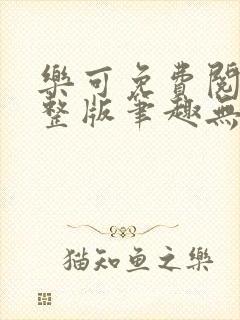 樂可免費閱
整版筆趣無
猫知鱼之樂